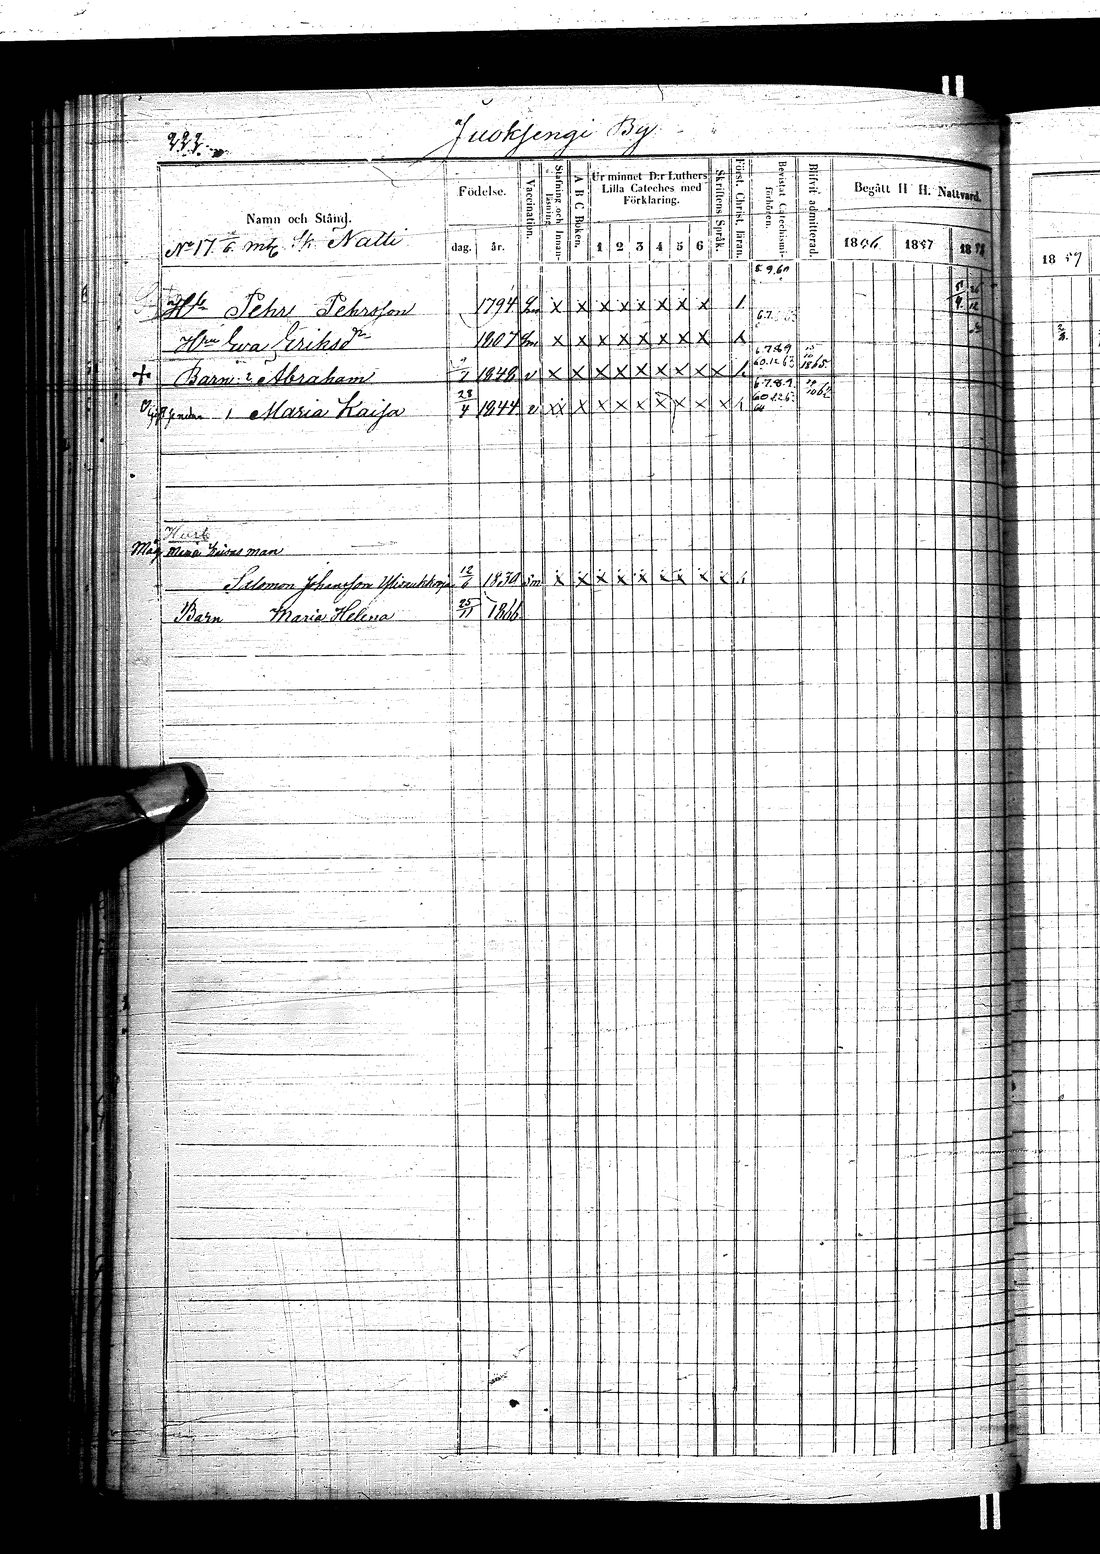 222.
Juoksengi By
Namn och Stånd.
Födelse.
dag.
år.
Vaccination.
Stafning och Innan-läsning.
A B C Boken.
Ur minnet D:r Luthers
Lilla Cateches med
Förklaring.
1 2 3 4 5 6
Skriftens Språk.
Först. Christ. läran.
Bevistat Catechismi-förhören.
Blifvit admitterad.
Begått H. H. Nattvard.
1856 1857 1858
1859
No 17. Natti
Pehr Pehrsson 1794 x x x x x x x x
Hu Eva Eriksdr 1807 x x x x x x x x
+ Barn: 2 Abraham 1848 v x x x x x x x x x 1865
1 Maria Kaisa 28/4 1844 v x x x x x x x x x
Maria Kaisas man
Salomon Johansson 12/6 1830 x x x x x x x x x
Barn Maria Helena 25/11 1866